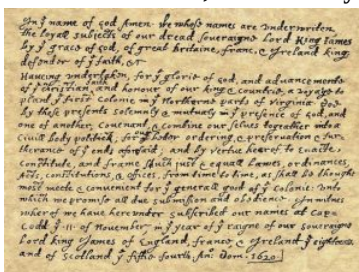 In yͤ name of god Amen· We whose names are vnderwriten,
the loyall subjects of our dread soueraigne Lord King James
by yͤ grace of god, of great Britaine, franc, & Ireland king,
defendor of yͤ faith, &c
Haueing vndertaken, for yͤ glorie of god, and aduancemente
of yͤ christian faith and honour of our king & countrie, a voyage to
plant yͤ first colonie in yͤ Northerne parts of Virginia· doe
by these presents solemnly & mutualy in yͤ presence of god, and
one of another, couenant, & combine our selues togeather into a
ciuill body politick; for our better ordering, & preseruation & fur=
therance of yͤ ends aforesaid; and by vertue hearof to enacte,
constitute, and frame shuch just & equall Lawes, ordinances,
Acts, constitutions, & offices, from time to time, as shall be thought
most meete & conuenient for yͤ generall good of yͤ colonie: vnto
which we promise all due submission and obedience. In witnes
wherof we haue herevnder subscribed our names at Cap=
Codd yͤ ·11· of Nouember, in yͤ year of yͤ raigne of our soueraigne
Lord king James of England, franc, & Ireland yͤ eighteenth
and of Scotland yͤ fiftie fourth. An: Dom. 1620